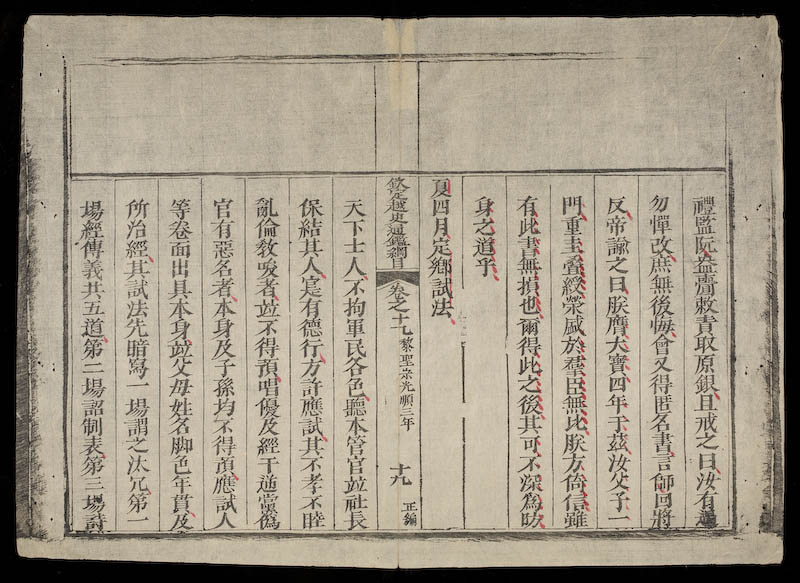 禮監阮益齎敕責取原銀且戒之曰汝有過
勿憚改庶無後悔會又得匿名書言師回將
反帝諭之曰朕膺大寶四年于茲汝父子一
門重圭疊組榮盛於羣臣無比朕方倚信雖
有此書無損也爾得此之後其可不深爲防
身之道乎
夏四月定鄉試法
欽定越史通鑑綱目 卷之十九 黎聖宗光順三年 十九 正編
天下士人不拘軍民各色聽本管官並社長
保結其人寔有德行方許應試其不孝不睦
亂倫教唆者並不得預唱優及經干逆黨僞
官有惡名者本身及子孫均不得預應試人
等卷面出具本身並父母姓名脚色年貫及
所治經其試法先暗寫一場謂之汰冗第一
場經傳義共五道第二場詔制表第三場詩